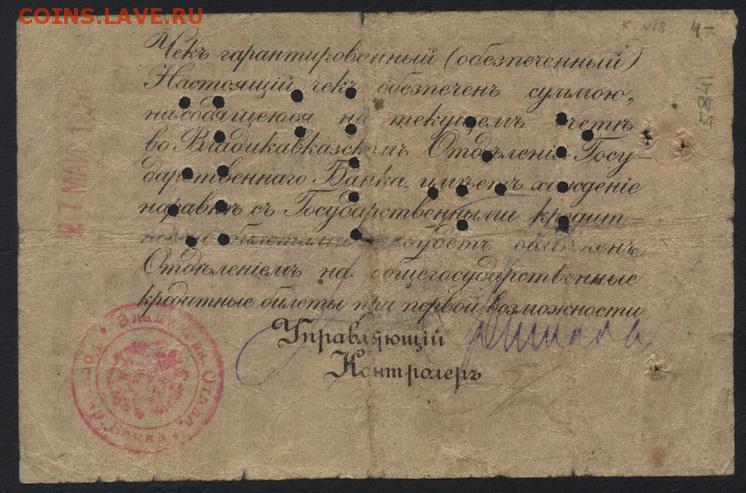 COINS.LAVE.RU
к. №18 4-
Чекъ гарантированный (обезпеченный)
Настоящій чекъ обезпеченъ суммою,
находящеюся на текущемъ счетѣ
во Владикавказскомъ Отдѣленіи Госу-
дарственнаго Банка, имѣетъ хожденіе
наравнѣ съ Государственными кредит-
ными билетами и будетъ обмѣненъ
Отдѣленіемъ на общегосударственные
кредитные билеты при первой возможности
Управляющій
Контролеръ
5841